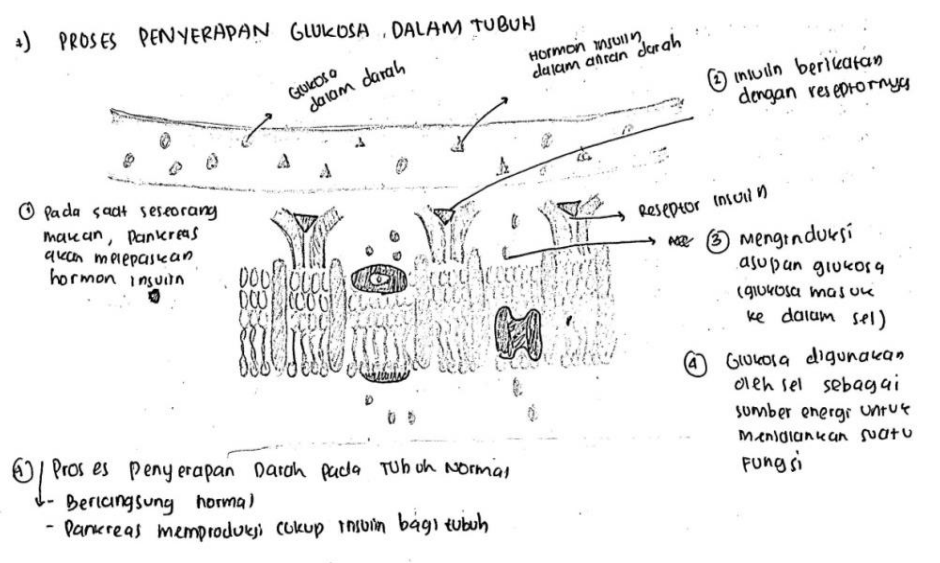 *) PROSES PENYERAPAN GLUKOSA DALAM TUBUH
Glukosa
dalam darah
Hormon insulin
dalam aliran darah
② insulin berikatan
dengan reseptornya
① Pada saat seseorang
makan, Pankreas
akan melepaskan
hormon insulin
Reseptor insulin
③ Menginduksi
asupan glukosa
(glukosa masuk
ke dalam sel)
④ Glukosa digunakan
oleh sel sebagai
sumber energi untuk
menjalankan suatu
Fungsi
Proses Penyerapan Darah pada Tubuh Normal
- Berlangsung normal
- Pankreas memproduksi cukup insulin bagi tubuh